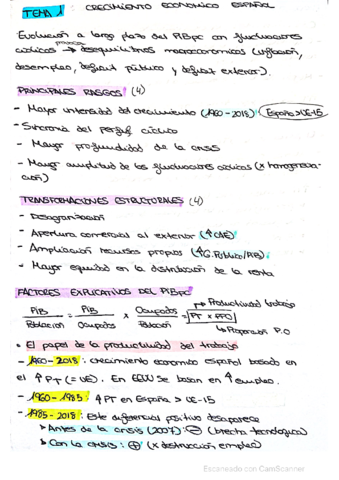 TEMA 1: CRECIMIENTO ECONOMICO ESPAÑOL
Evolución a largo plazo del PIBpc con fluctuaciones
cíclicas → desequilibrios macroeconomicos (inflación,
desempleo, déficit público y déficit exterior).
PRINCIPALES RASGOS (4)
- Mayor intensidad del crecimiento (1960-2018) España > UE-15
- Sincronía del perfil cíclico
- Mayor profundidad de la crisis
- Mayor amplitud de las fluctuaciones cíclicas (x homogeneiza-
ción)
TRANSFORMACIONES ESTRUCTURALES (4)
- Desagrarización
- Apertura comercial al exterior (↑CAE)
- Ampliación recursos propios (↑G.Público/PIB)
- Mayor equidad en la distribución de la renta
FACTORES EXPLICATIVOS DEL PIBpc
→ Productividad trabajo
PIB / Población = PIB / Ocupados x Ocupados / Población = PT x PPO
↳ Proporción P.O
• El papel de la productividad del trabajo
- 1960-2018: crecimiento economico español basado en
el ↑PT (= UE). En EEUU se basan en ↑empleo.
- 1960-1985: ↑PT en España > UE-15
- 1985-2018: Este diferencial positivo desaparece
↳ Antes de la crisis (2007): ⊖ (brecha tecnológica)
↳ Con la crisis: ⊕ (x destrucción empleo)
Escaneado con CamScanner